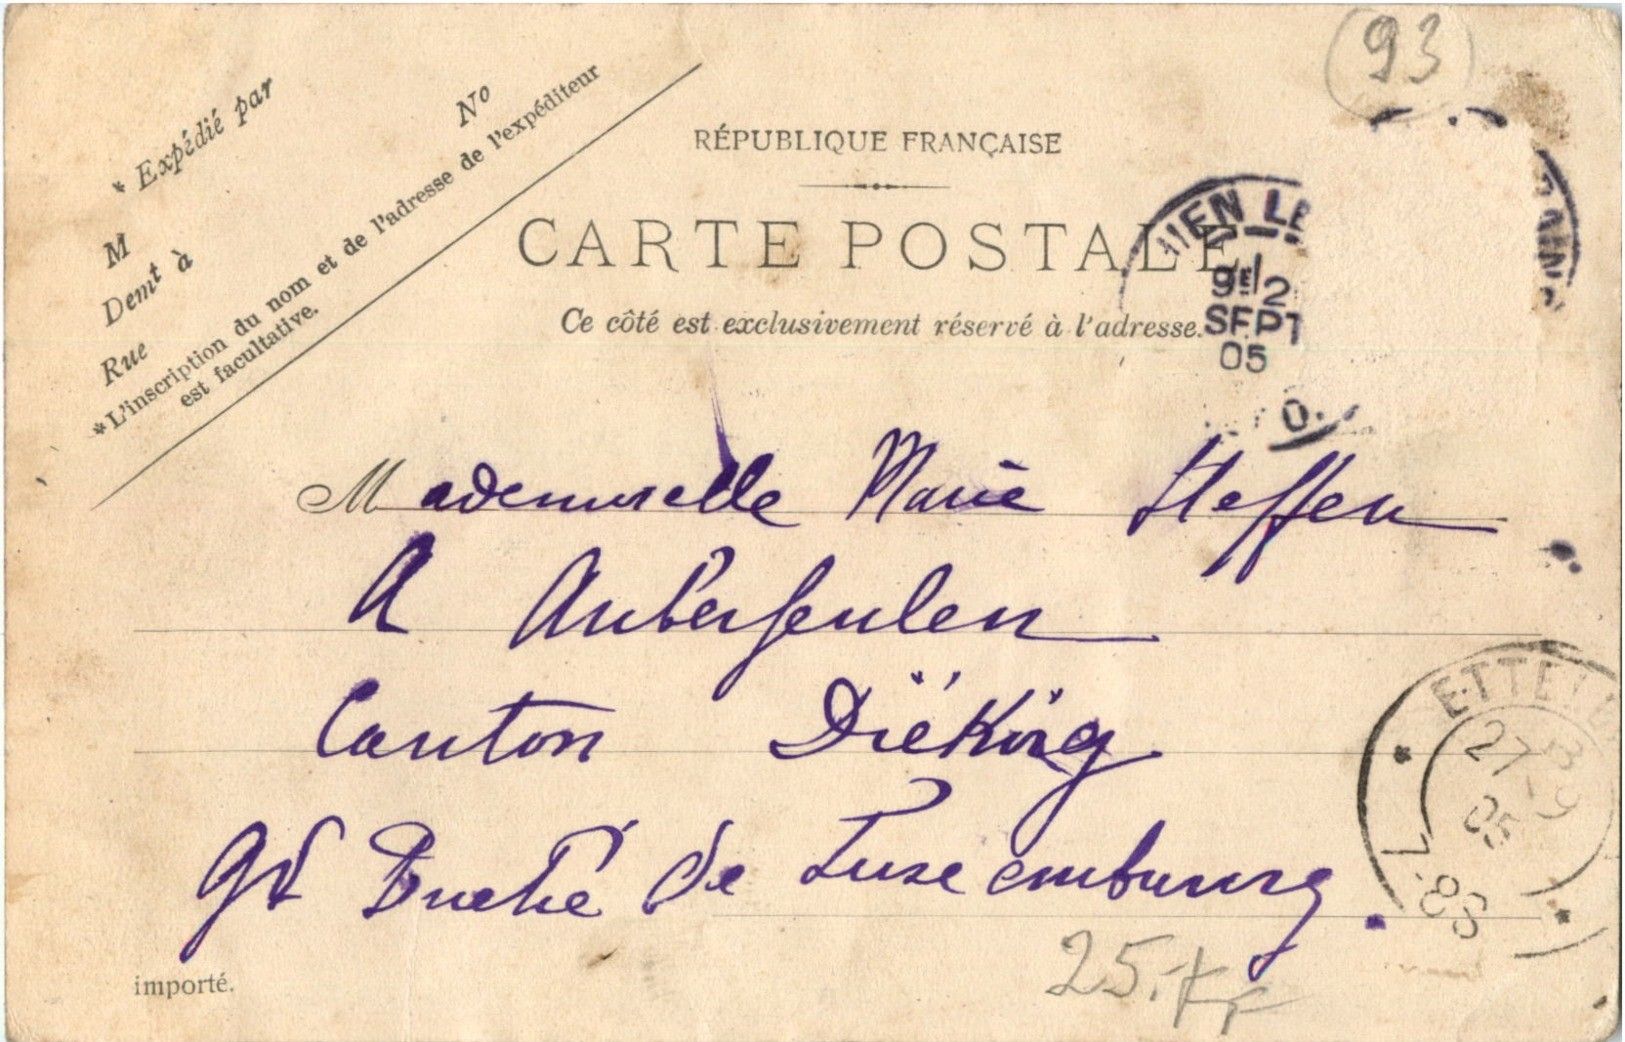 (93)
* Expédié par
M
Dem<sup>t</sup> à
Rue
N°
* L'inscription du nom et de l'adresse de l'expéditeur
est facultative.
RÉPUBLIQUE FRANÇAISE
CARTE POSTALE
Ce côté est exclusivement réservé à l'adresse.
9E/2
SEPT
05
Mademoiselle Marie Steffen
A Auberfeulen
Canton Diekirg
Gd Duché de Luxembourg.
ETTEL
27
9
05
importé.
25.-